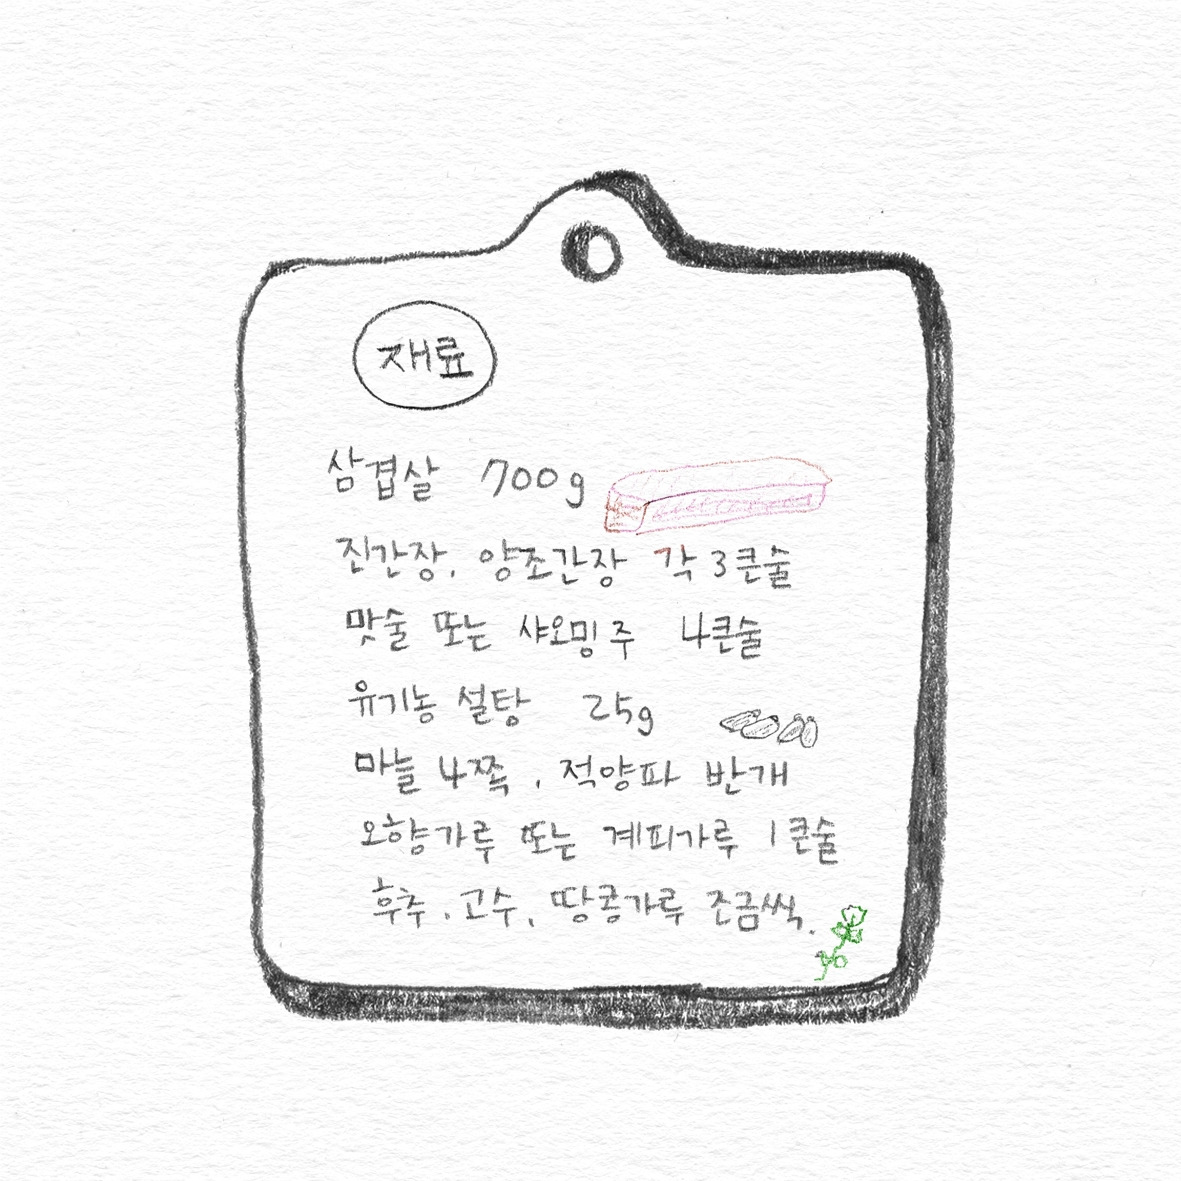 재료
삼겹살 700g
진간장, 양조간장 각 3큰술
맛술 또는 샤오밍주 4큰술
유기농 설탕 25g
마늘 4쪽, 적양파 반개
오향가루 또는 계피가루 1큰술
후추, 고수, 땅콩가루 조금씩.